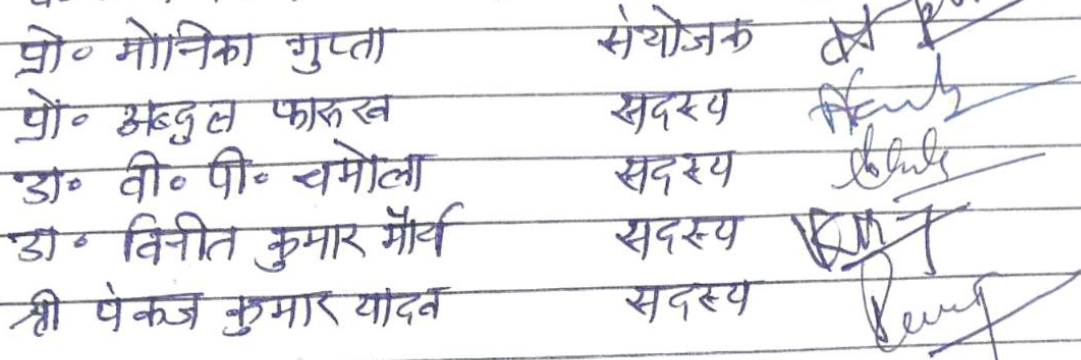 प्रो॰ मोनिका गुप्ता संयोजक
प्रो॰ अब्दुल फारुख सदस्य
डा॰ वी॰ पी॰ चमोला सदस्य
डा॰ विनीत कुमार मौर्य सदस्य
श्री पंकज कुमार यादव सदस्य